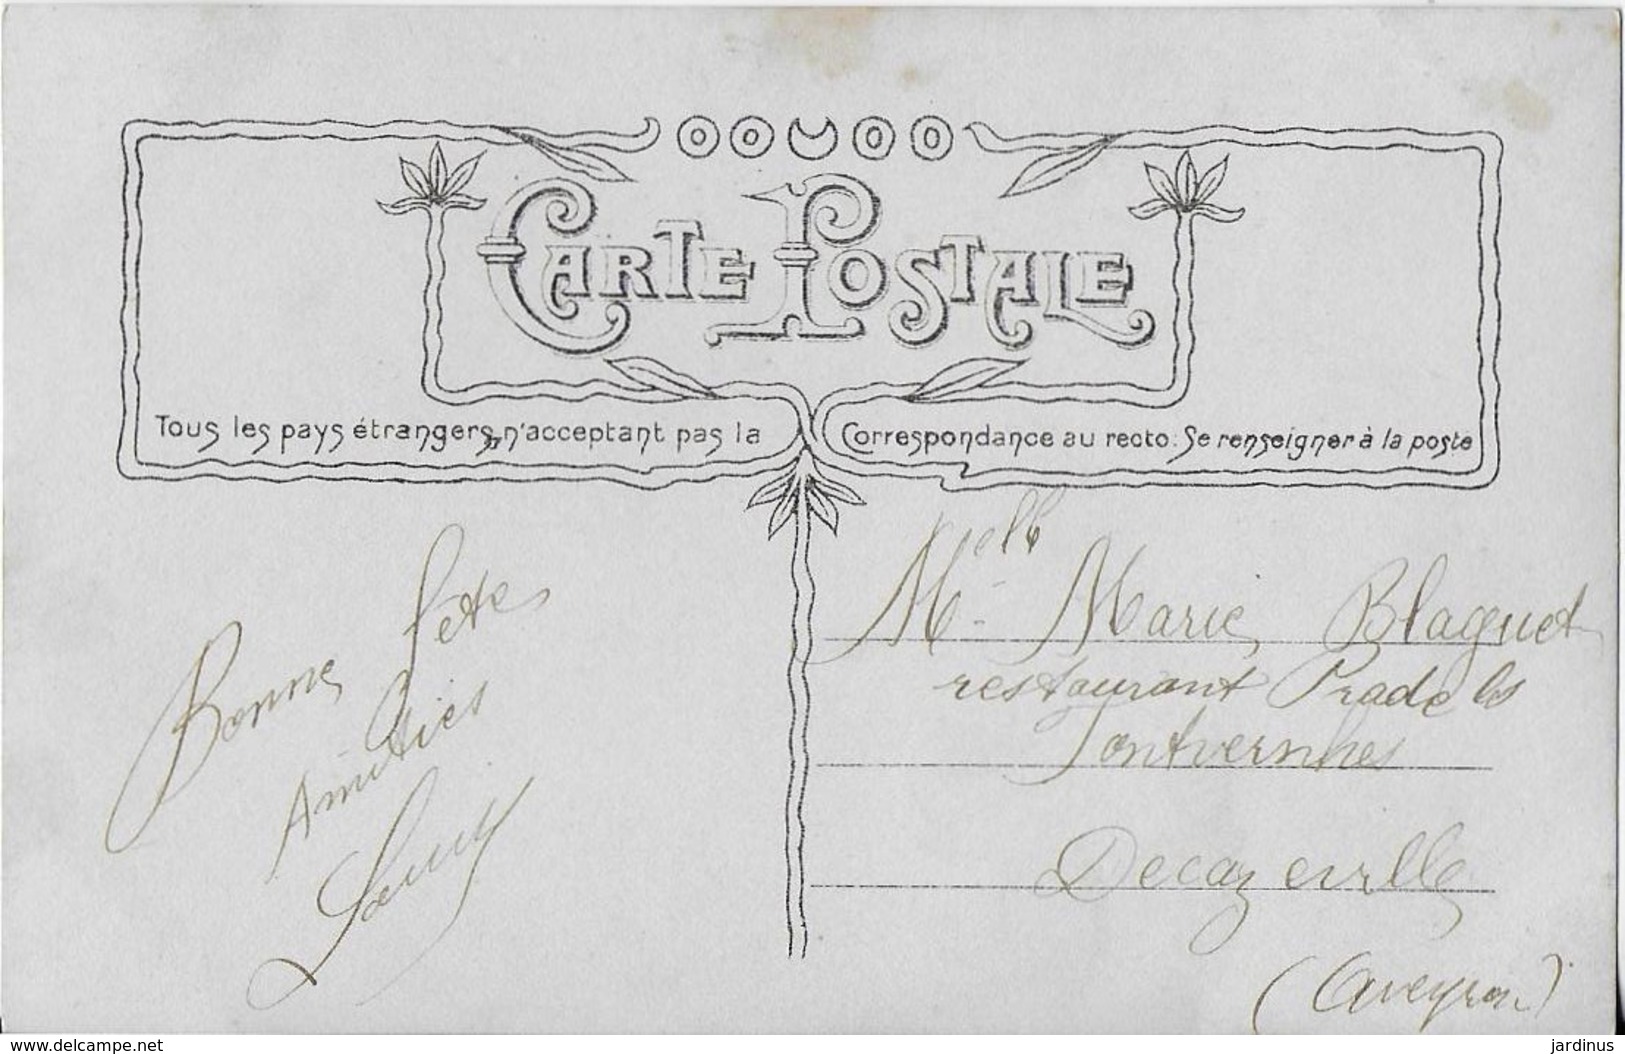 CARTE POSTALE
Tous les pays étrangers, n'acceptant pas la Correspondance au recto: Se renseigner à la poste
Bonne fête
Amitiés
Melle Marie Blaquet
restaurant Pradels
Fontvernhes
Decazeville
(Aveyron)
www.delcampe.net
jardinus